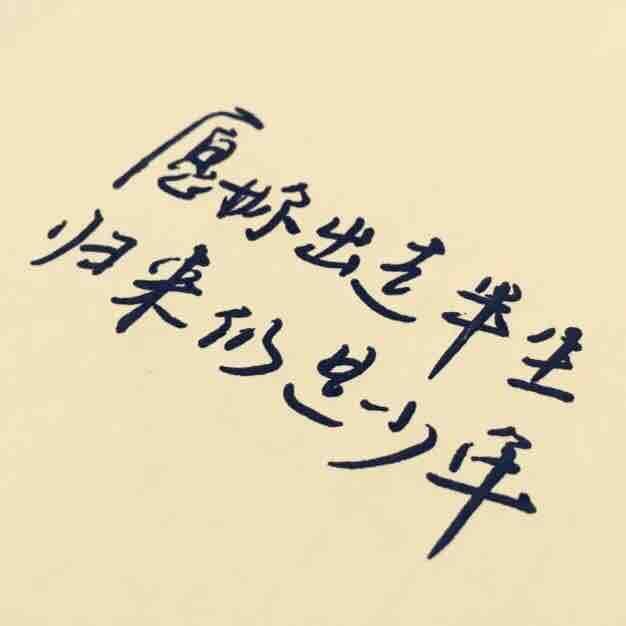 愿妳出走半生
归来仍是少年